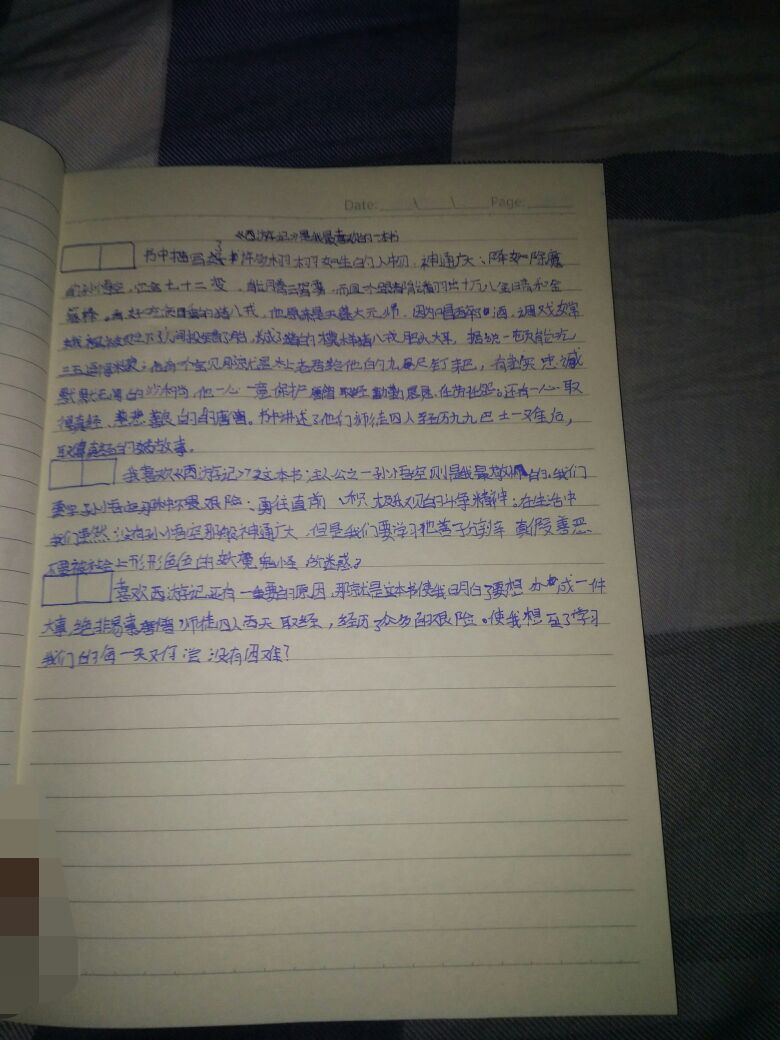 Date: \ \ Page:
《西游记》是我最喜欢的一本书
书中描写了许多栩栩如生的人物，神通广大、降妖除魔
的孙悟空，它会七十二变，能腾云驾雾，而且个跟都能翻出十万八金睛和金
箍棒。好吃懒的猪八戒，他原来是天蓬大元帅，因为喝醉酒，调戏嫦
娥被之下人间投错了胎，成了猪的模样猪八戒肥头大耳，一顿能吃
三五，有个宝贝那就是太上老君给他的九尺钉耙，有忠实忠诚
默默无的沙和尚，他一心一意保护唐僧取经勤勤恳恳，任劳任怨。还有一心取
得真经、慈悲善良的的唐僧。书中讲述了他们师徒四人经历九九八十一难后，
取得真经的故事。
我喜欢《西游记》这本书；主人公之一孙悟空则是我最敬佩的。我们
要学孙悟空那种不畏艰险、勇往直前、积极乐观的斗争精神。在生活中
我们虽然没有孙悟空那般神通广大，但是我们要学习他善于分辨真假善恶
不要被社会上形形色色的妖魔鬼怪所迷惑？
喜欢西游记还有一重要的原因，那就是这本书使我明白了要想办成一件
大事，绝非易事唐僧师徒四人西天取经，经历了众多的艰险。使我想互了学习
我们的每一天又何尝没有困难？